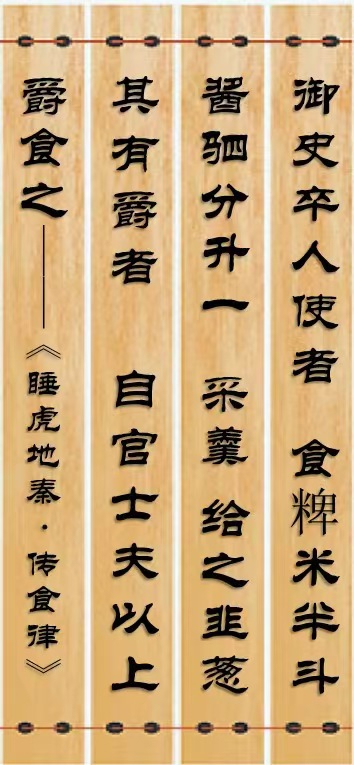 御史卒人使者 食粺米半斗
酱驷分升一 采羹 给之韭葱
其有爵者 自官士夫以上
爵食之——《睡虎地秦·传食律》